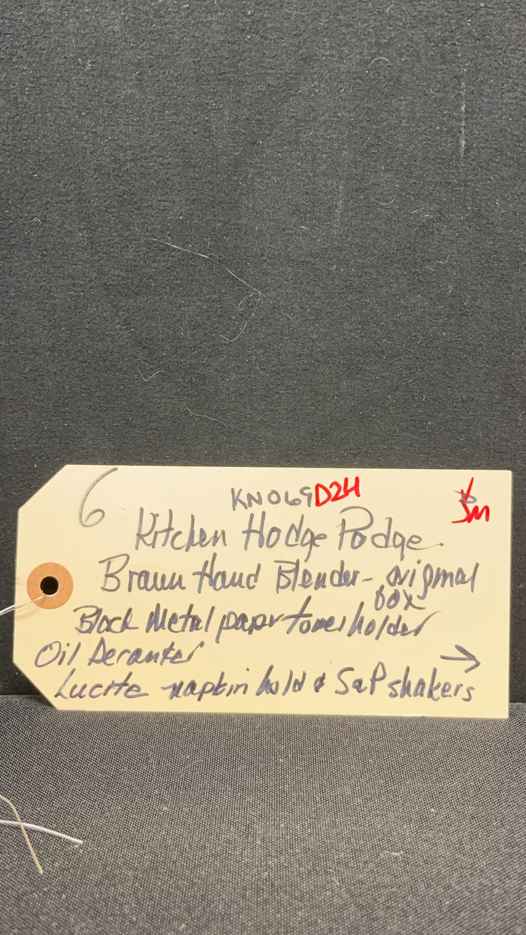 6
KN069 D2H
Kitchen Hodge Podge
Braun Hand Blender - original
box
Black Metal paper towel holder
Oil Decanter
→
Lucite napkin hold & S&P shakers